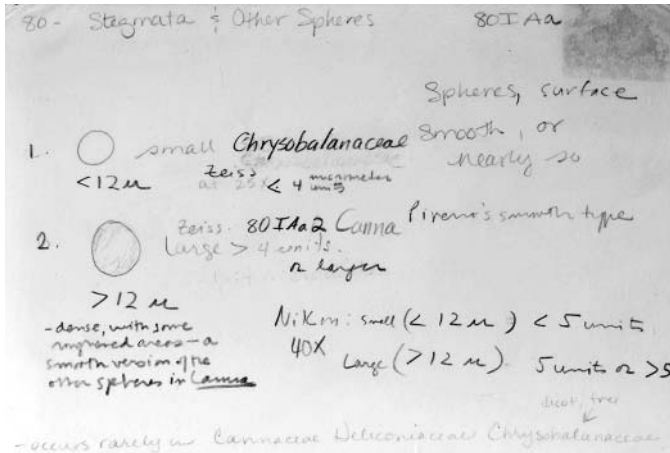 80- Stegmata & Other Spheres 80IAa
Spheres, surface
smooth, or
nearly so
1. small Chrysobalanaceae
<12µ Zeiss at 25X < 4 micrometer units
2. Zeiss. 80IAa2 Canna Piperno's smooth type
Large > 4 units.
or larger
>12 µ
-dense, with some
areas - a
smooth version of the
other spheres in Canna
Nikon: small (<12µ) < 5 units
40X Large (>12µ). 5 units or >5
dicot, tree
-occurs rarely in Cannaceae Heliconiaceae Chrysobalanaceae